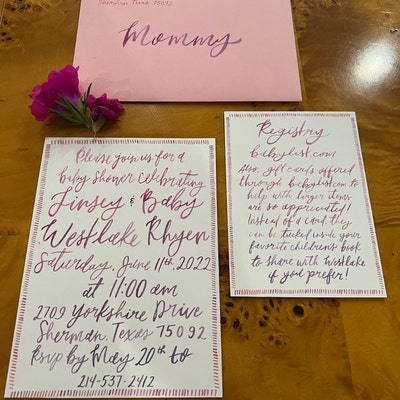 Sherman, Texas 75092
Mommy
Please join us for a
baby shower celebrating
Linsey & Baby
Westlake Rhyen
Saturday, June 11th, 2022
at 11:00 am
2709 Yorkshire Drive
Sherman, Texas 75092
Rsvp by May 20th to
214-537-2412
Registry
babylist.com
Also, gift cards offered
through babylist.com to
help with larger items
are so appreciated!
Instead of a card, they
can be tucked inside your
favorite children's book
to share with Westlake
if you prefer!